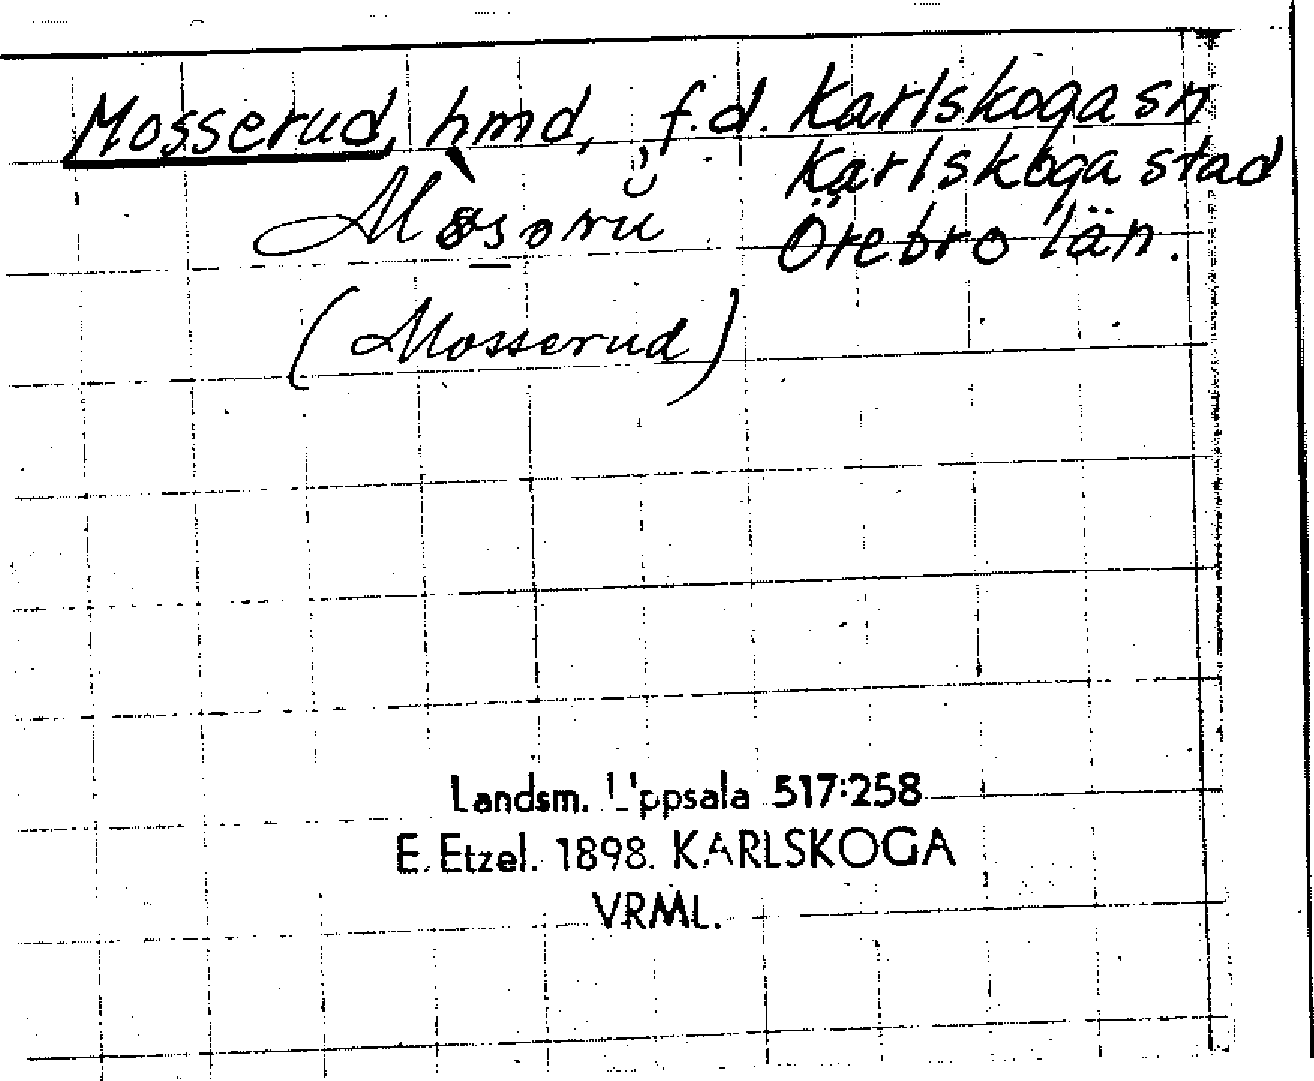 Mosserud, hmd, f.d. Karlskoga sn
Karlskoga stad
Örebro län.
(Mosserud)
Landsm. Uppsala 517:258
E. Etzel. 1898. KARLSKOGA
VRML.